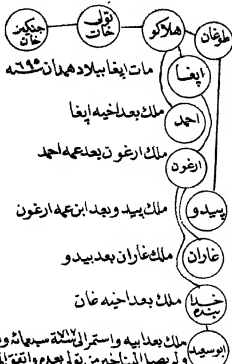 جنكيز خان
تولى خان
هلاكو
طوغان
ابغا
مات ابغا ببلاد همدان سنة ٦٩٥
احمد
ملك بعد اخيه ابغا
ارغون
ملك ارغون بعد عمه احمد
بيدو
ملك بيدو بعد ابن عمه ارغون
غازان
ملك غازان بعد بيدو
خدا بنده
ملك بعد اخيه غان
ابوسعيد
ملك بعد ابيه واستمر الى سنة ٧١٧ سبعمائة